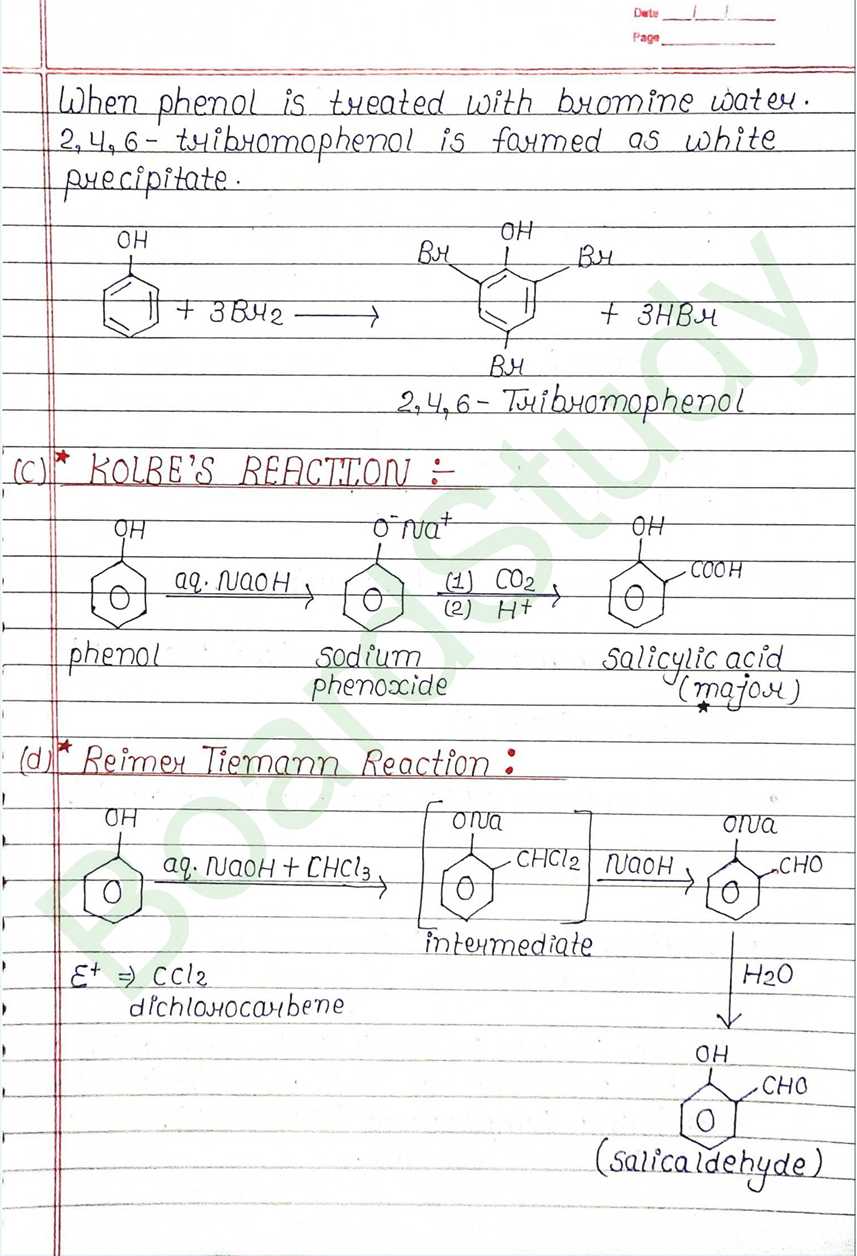 Date / /
Page
When phenol is treated with bromine water.
2,4,6- tribromophenol is formed as white
precipitate.
OH
+ 3Br2
OH
Br
Br
Br
+ 3HBr
2,4,6- Tribromophenol
(c)* KOLBE'S REACTION :-
OH
aq. NaOH
O⁻Na⁺
(1) CO2
(2) H+
OH
COOH
phenol
sodium
phenoxide
salicylic acid
(major)
(d)* Reimer Tiemann Reaction :
OH
aq. NaOH + CHCl3
ONa
CHCl2
NaOH
ONa
CHO
intermediate
E+ ⇒ CCl2
dichlorocarbene
H2O
OH
CHO
(salicaldehyde)
BoardStudy